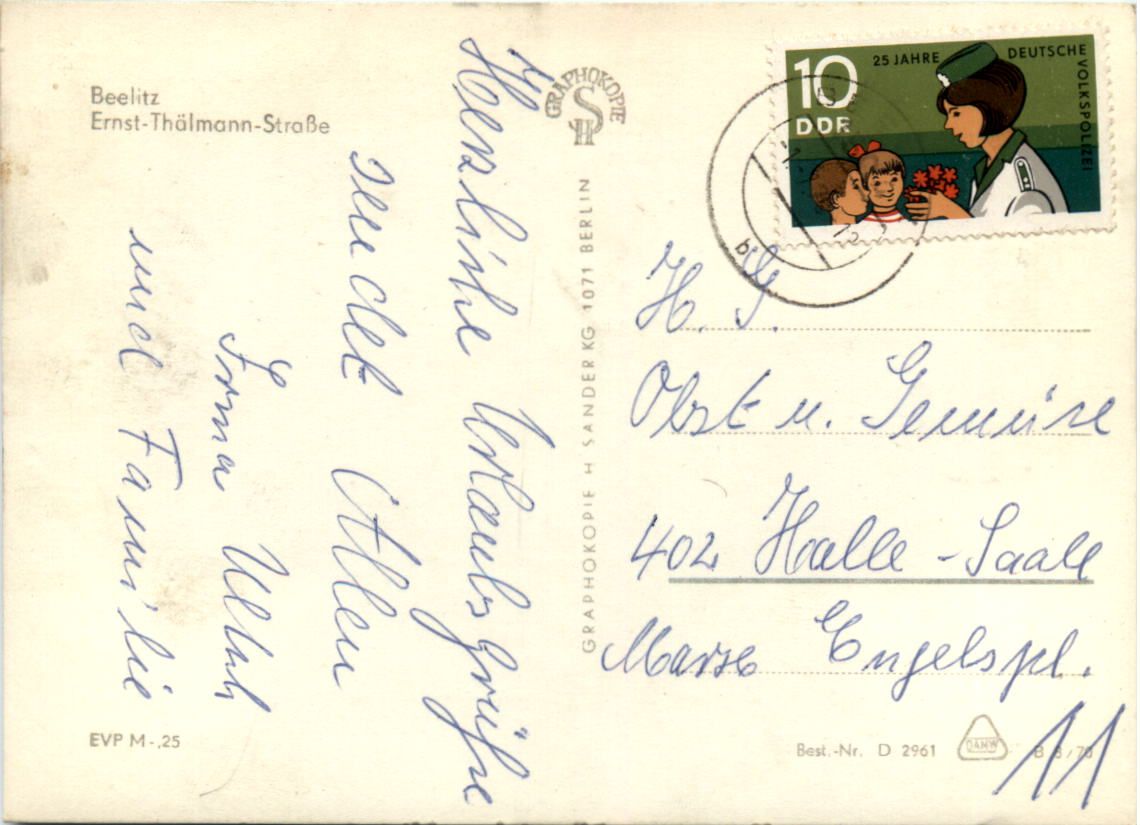 Beelitz
Ernst-Thälmann-Straße
Herzliche Urlaubsgrüße
sendet Allen
Irma
und Familie
EVP M -,25
GRAPHOKOPIE
H S
GRAPHOKOPIE H SANDER KG 1071 BERLIN
10
DDR
25 JAHRE DEUTSCHE VOLKSPOLIZEI
b
H. G.
Obst u. Gemüse
402 Halle - Saale
Marx Engelspl.
11
Best.-Nr. D 2961
DAMW
B 3/70